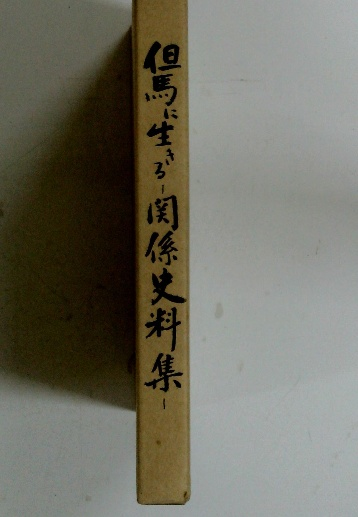 但馬に生きる-関係史料集-